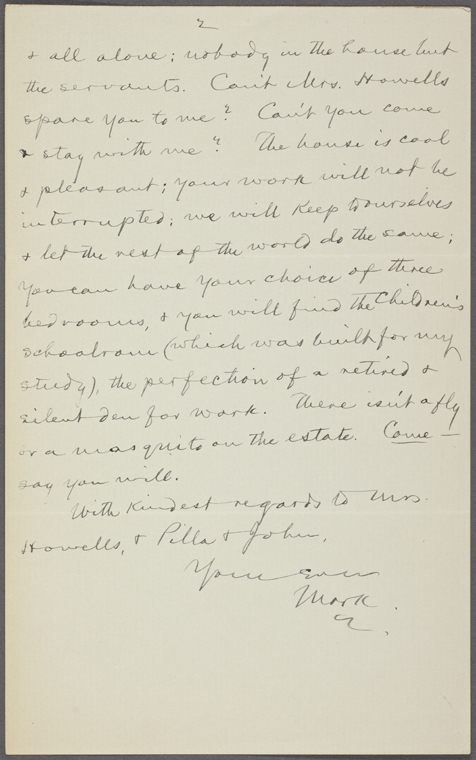 2
& all alone; nobody in the house but
the servants. Can't Mrs. Howells
spare you to me? Can't you come
& stay with me? The house is cool
& pleasant; your work will not be
interrupted; we will keep to ourselves
& let the rest of the world do the same;
you can have your choice of three
bedrooms, & you will find the Children's
schoolroom (which was built for my
study), the perfection of a retired &
silent den for work. There isn't a fly
or a mosquito on the estate. Come —
say you will.
With kindest regards to Mrs.
Howells, & Pilla & John,
Yours Ever
Mark.